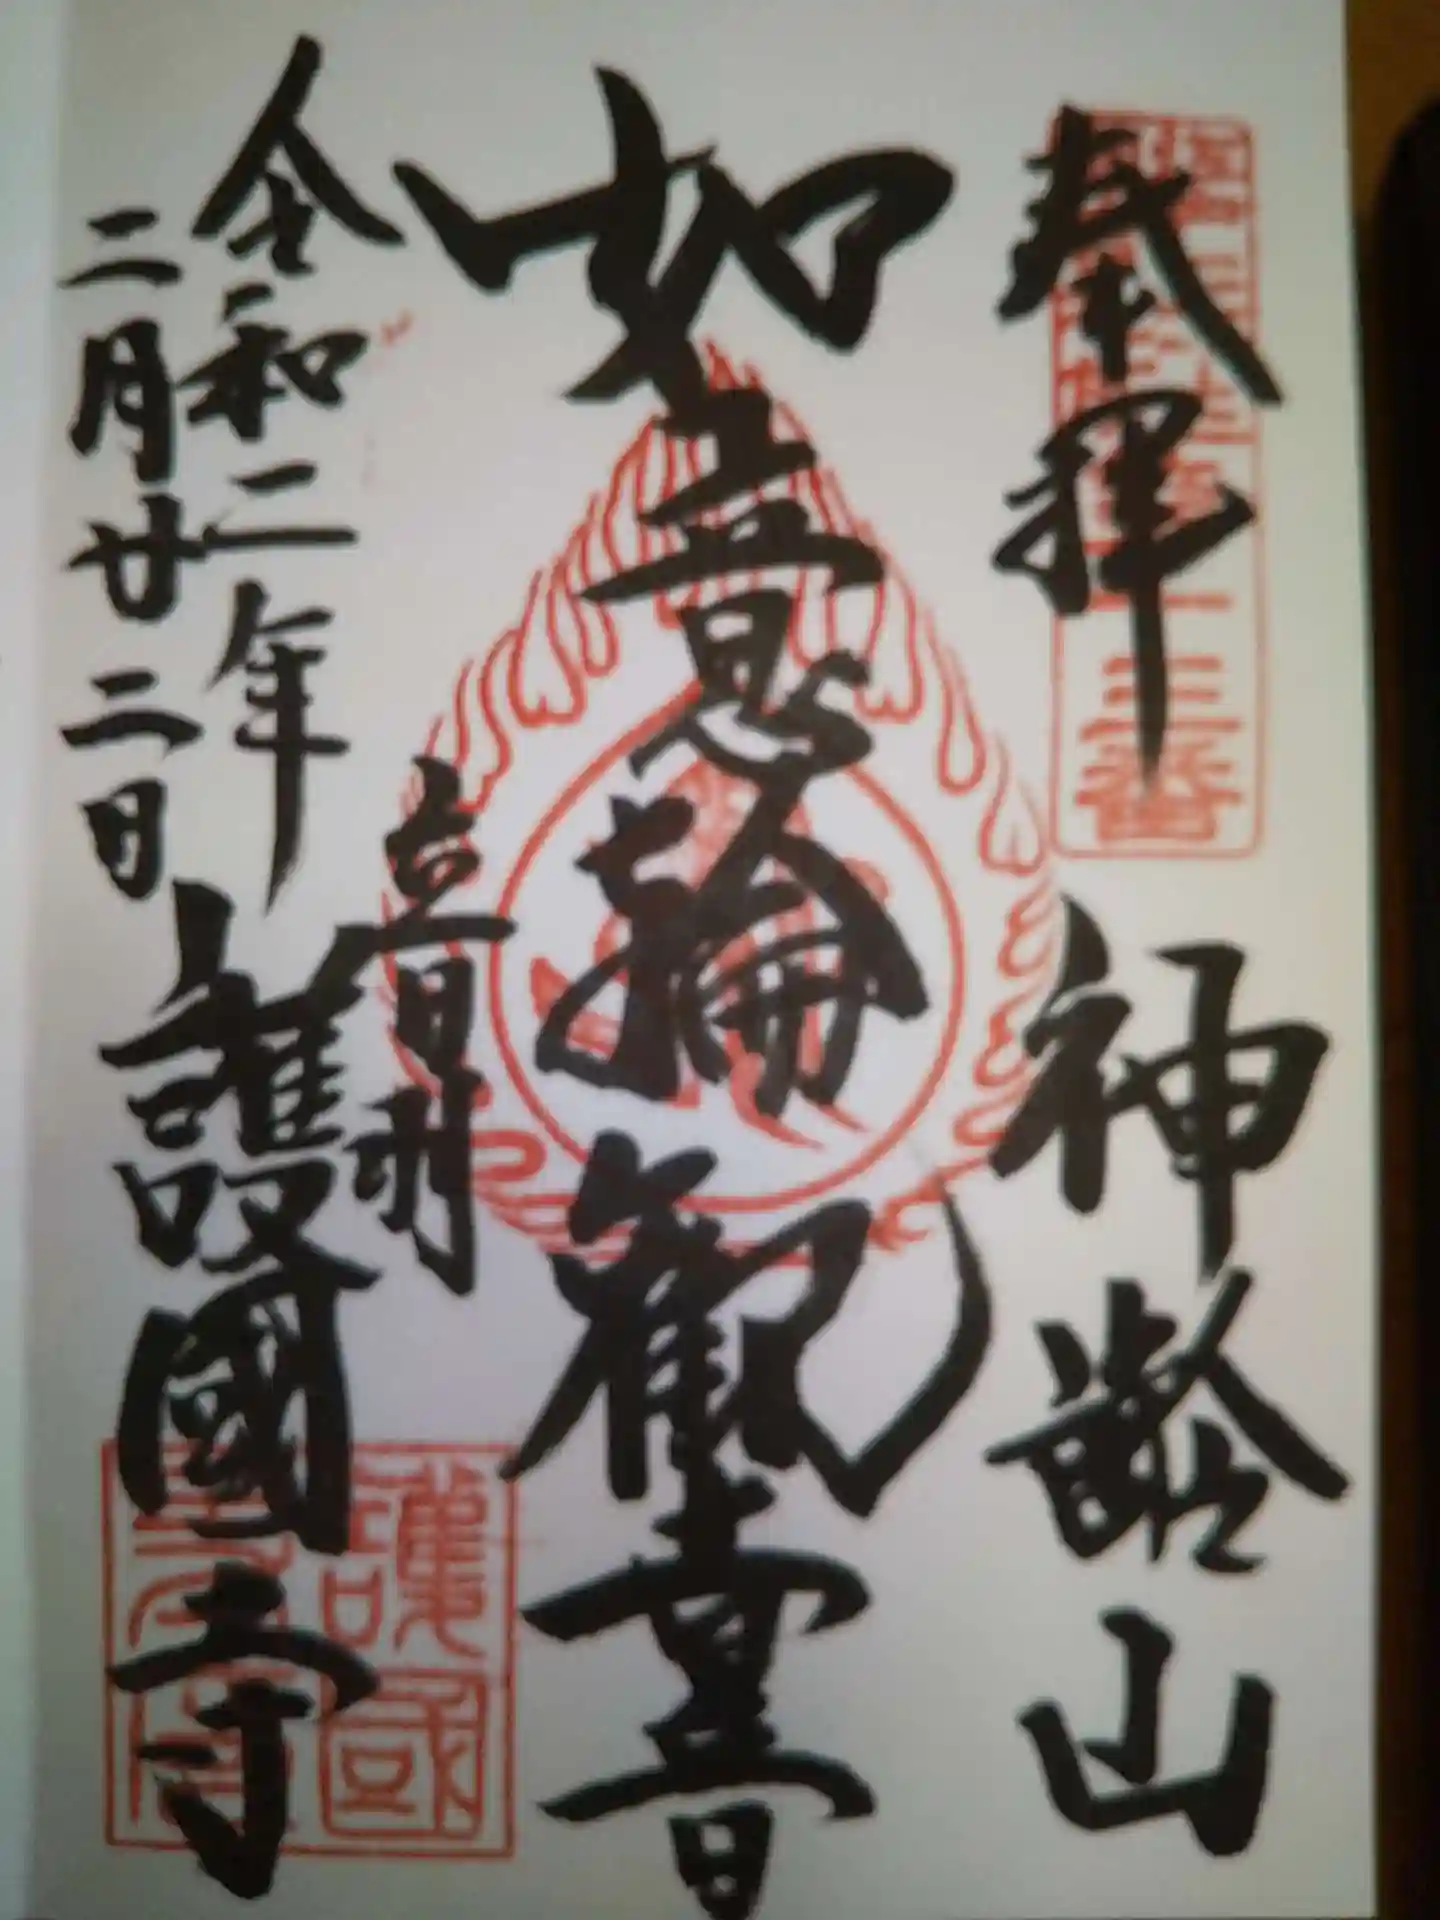 奉拝
神齢山
如意輪観世音
音羽
護國寺
令和二年
二月廿二日
護國
三番